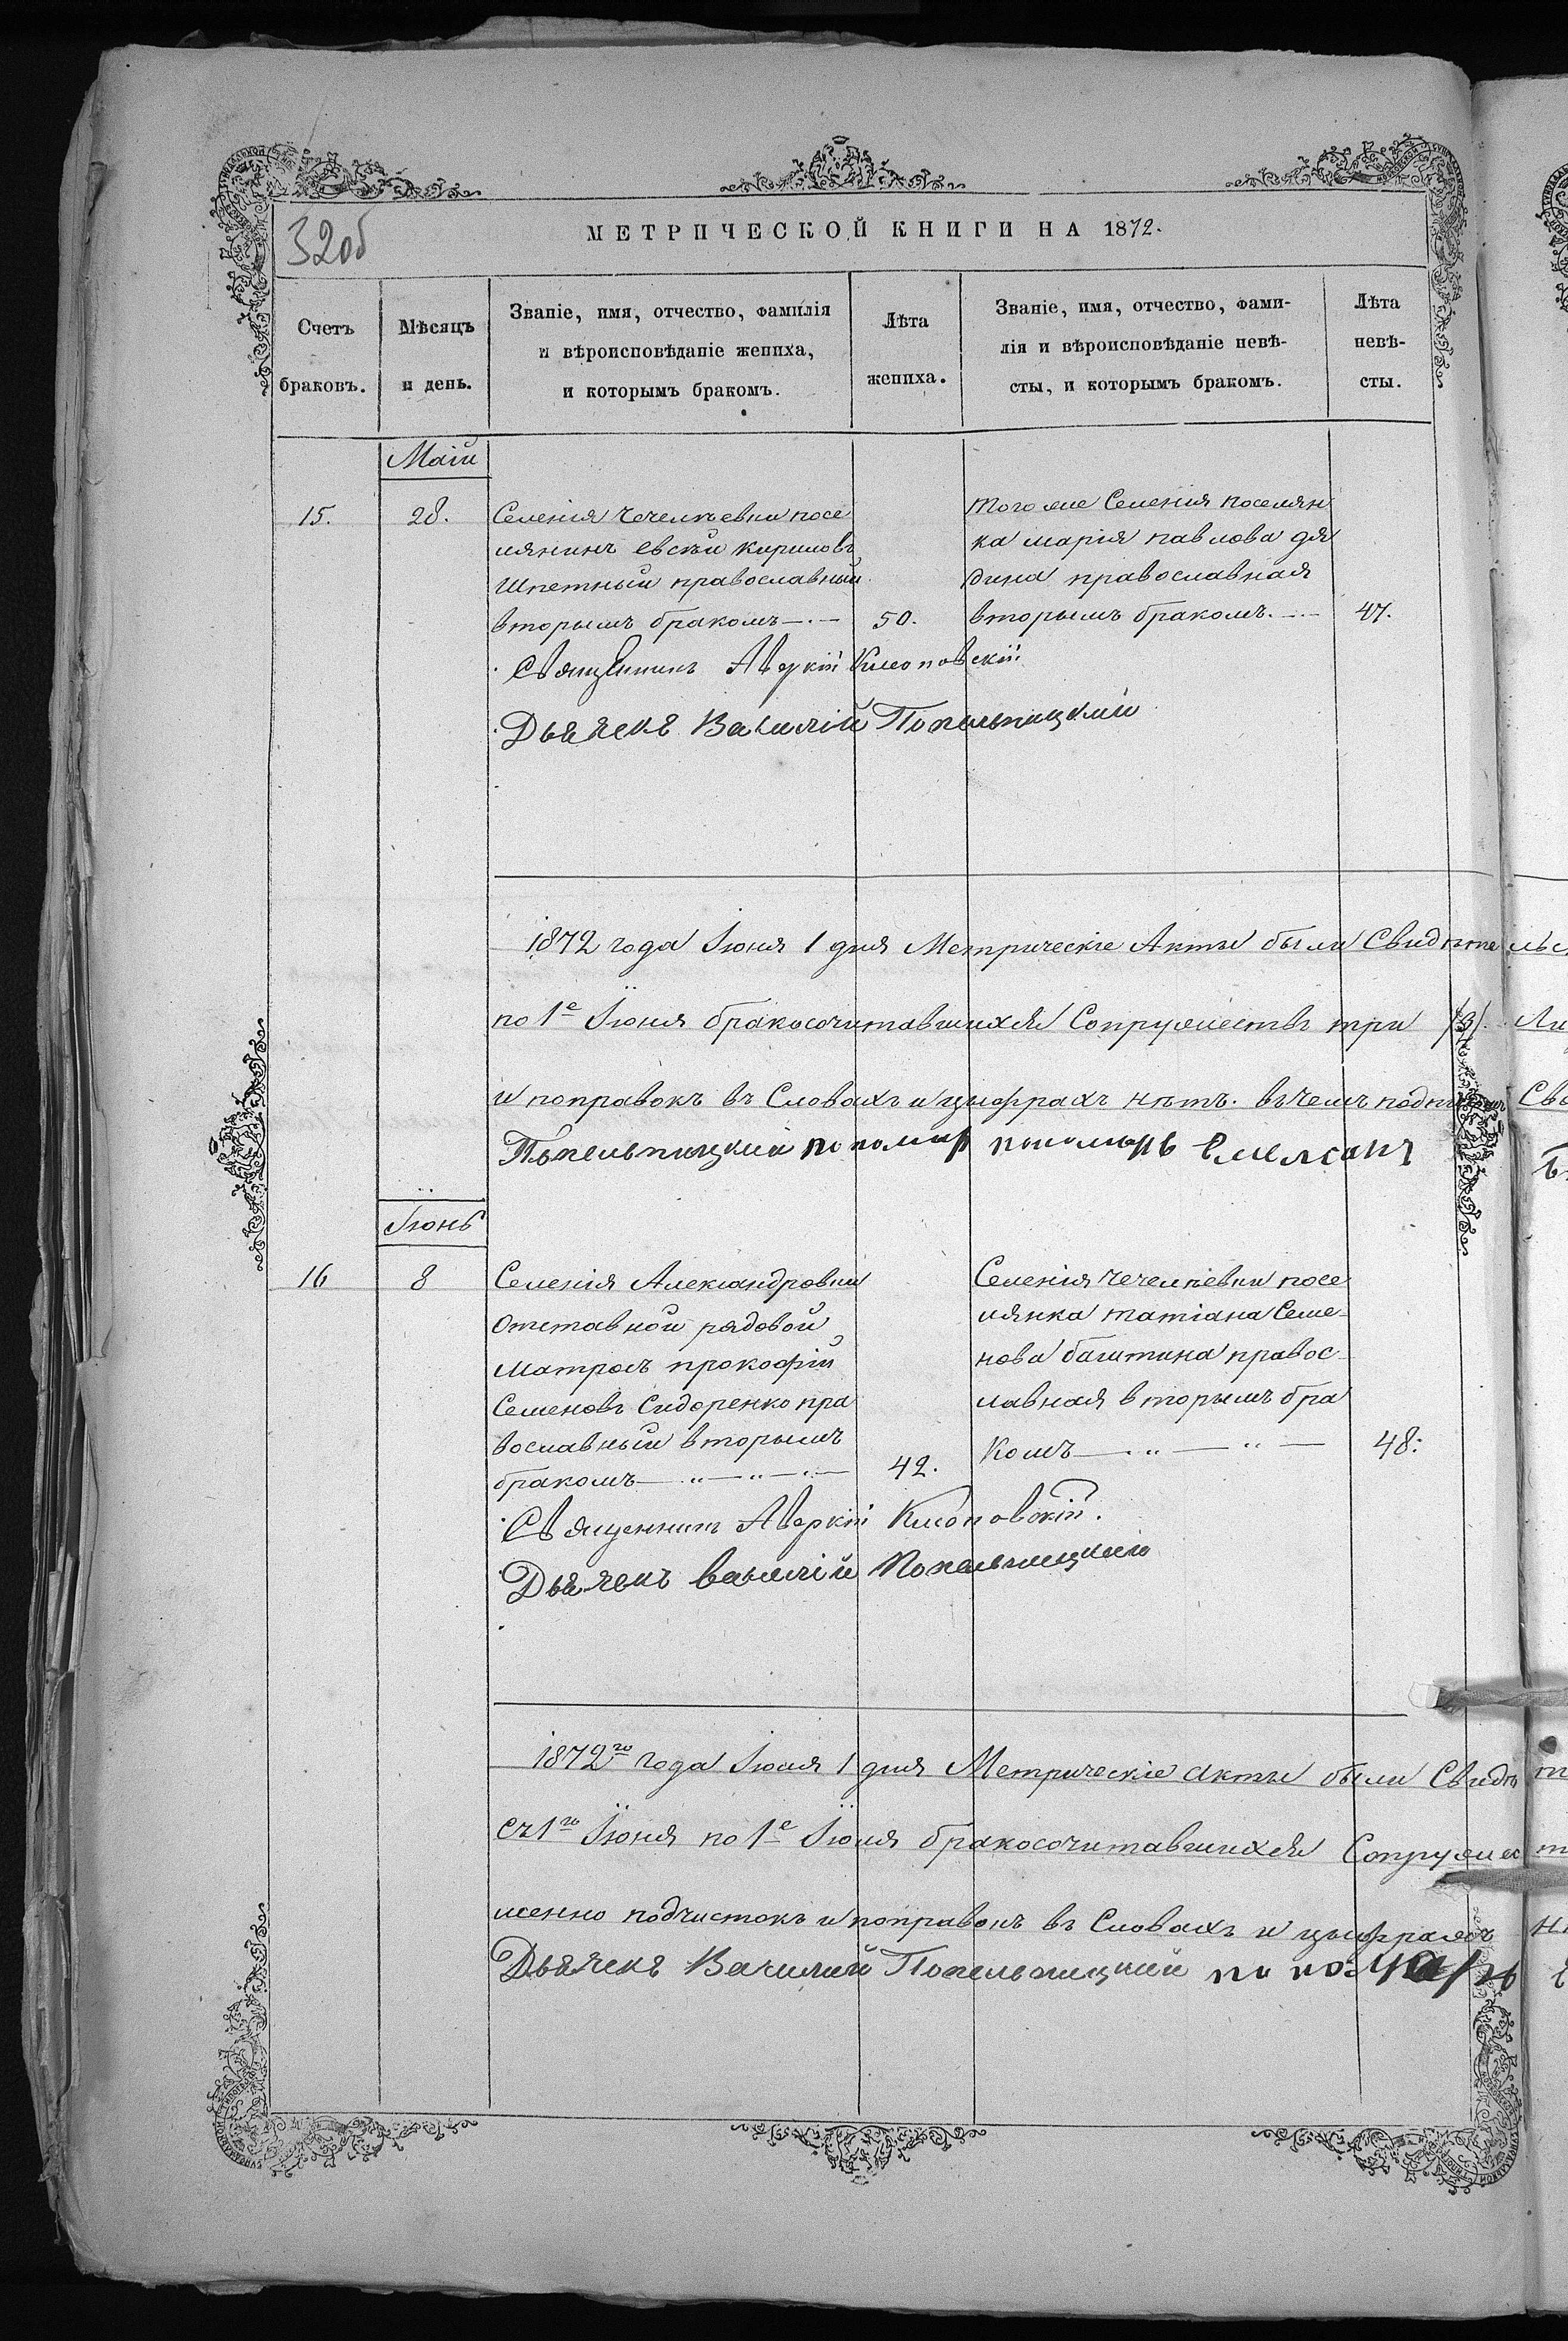 32об
МЕТРИЧЕСКОЙ КНИГИ НА 1872.
Счетъ браковъ.
Мѣсяцъ и день.
Званіе, имя, отчество, фамилія
и вѣроисповѣданіе жениха,
и которымъ бракомъ.
Лѣта жениха.
Званіе, имя, отчество, фами-
лія и вѣроисповѣданіе невѣ-
сты, и которымъ бракомъ.
Лѣта невѣ-
сты.
Маій
15.
28.
Селенія Чечелѣевки посе
лянинъ Евсѣй Кириловъ
Шпетный православный
вторымъ бракомъ —.—
50.
того же Селенія поселян
ка марія павлова дя
дина православная
вторымъ бракомъ. —
47.
Священникъ Аверкій Климовскій
Дьячекъ Василій Попельницкій
1872 года Іюня 1 дня Метрическіе Акты были Свидѣте
по 1е Іюня бракосочитавшихся Супружествъ три /3/.
и поправокъ въ Словахъ и цыфрахъ нѣтъ. въ чемъ
Попельницкій пономарь
Іюнь
16
8
Селенія Александровки
Отставной рядовой
матросъ прокофій
Семеновъ Сидоренко пра
вославный вторымъ
бракомъ — „ — „ —
42.
Селенія Чечелѣевки посе
лянка татіана Семе-
нова баштина правос-
лавная вторымъ бра
комъ — „ — „ —
48:
Священникъ Аверкій
Дьячекъ василій Попельницкій
1872го года Іюля 1 дня Метрическіе Акты были Свидѣ
съ 1го Іюня по 1е Іюля бракосочитавшихся
менно подчистокъ и поправокъ въ Словахъ и цыфрахъ
Дьячекъ Василий Попельницкий